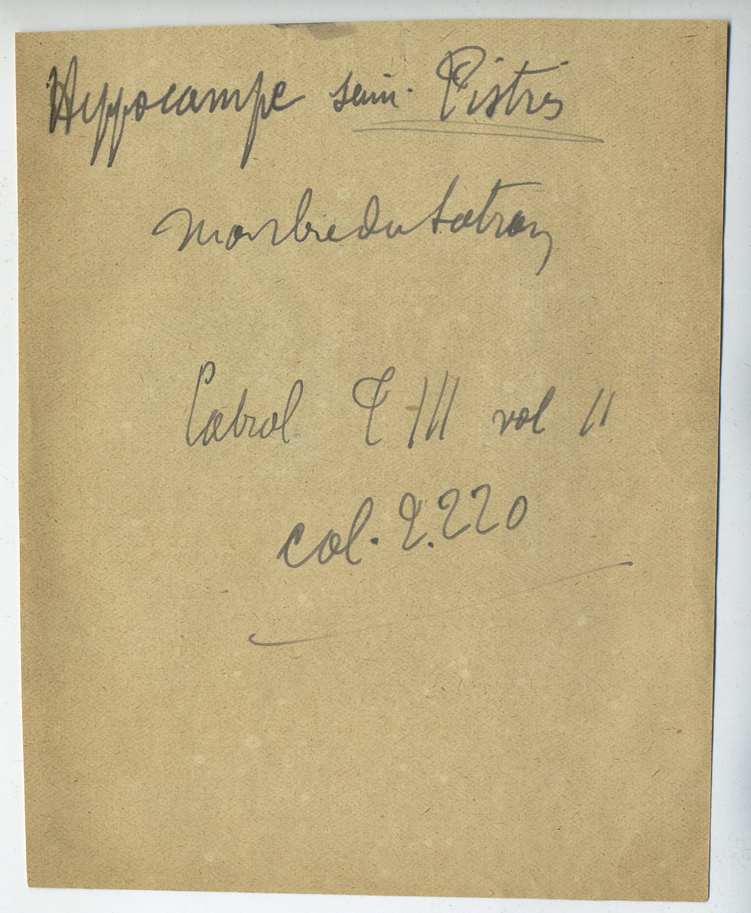 Hyppocampe sem. Pistris
Marbre du Latran
Cabrol T III vol II
col. 2.220